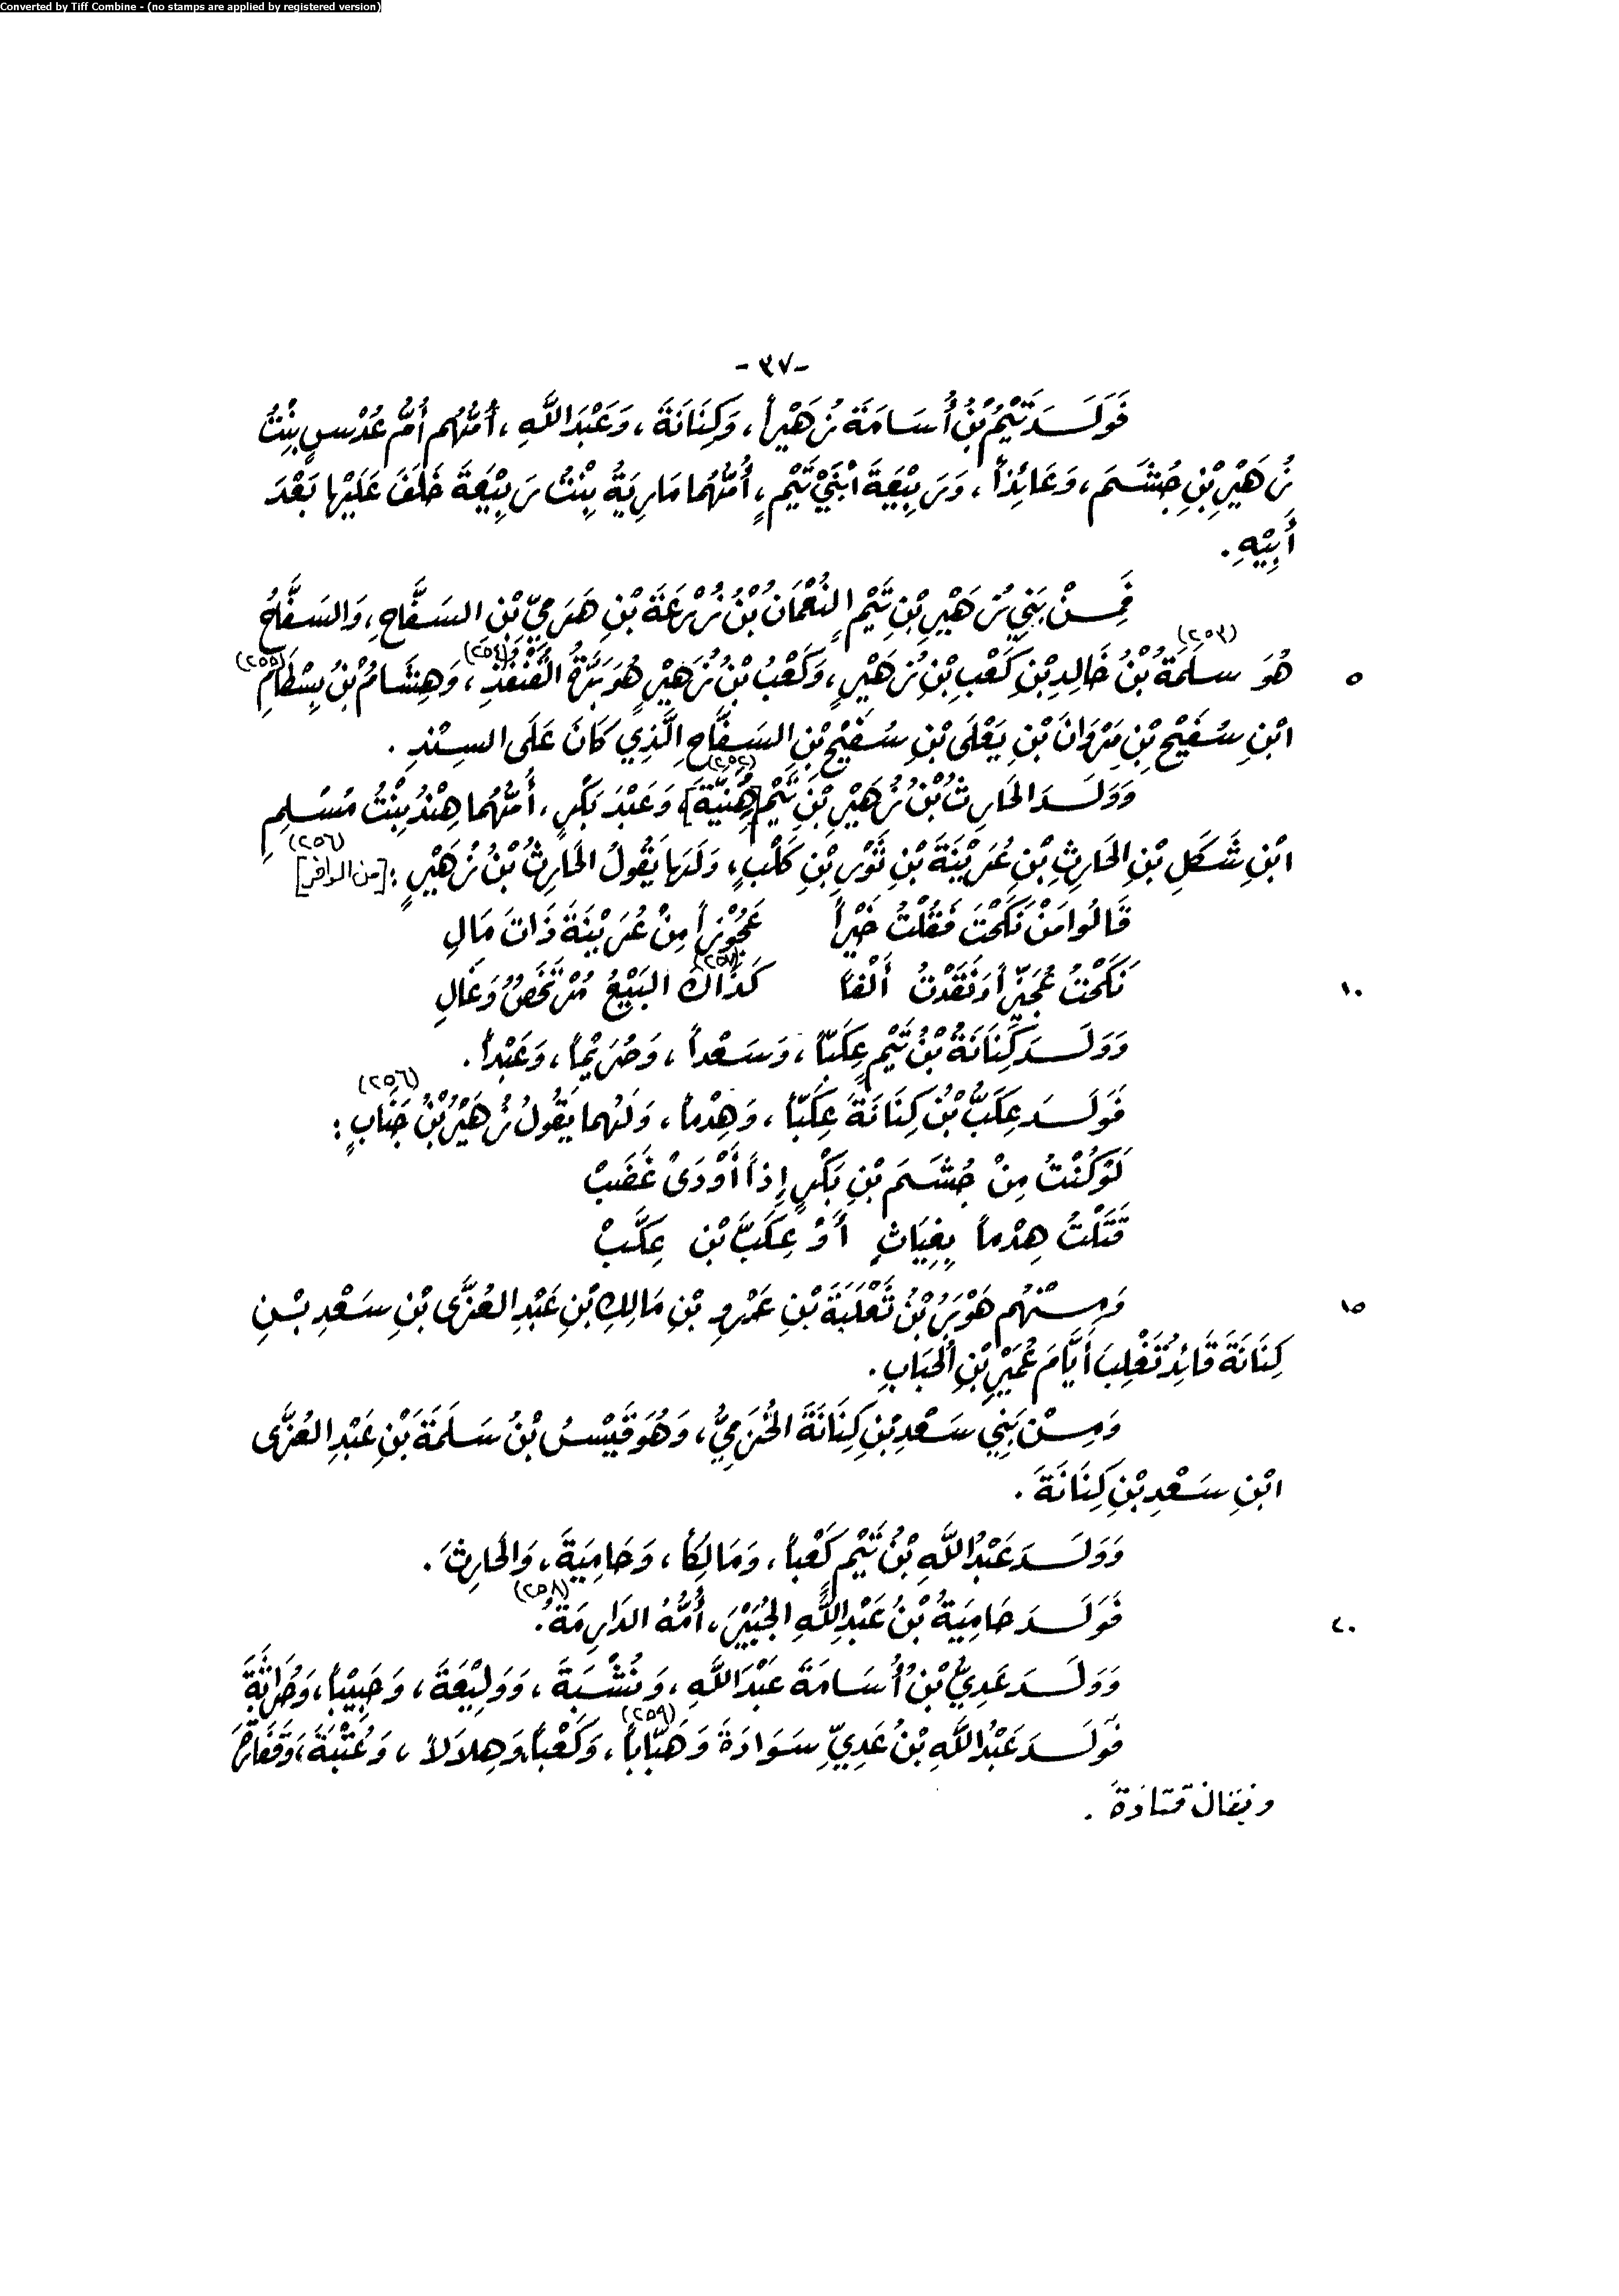 Converted by Tiff Combine - (no stamps are applied by registered version)
-٣٧-
فَوَلَدَ تَيْمُ بْنُ أُسَامَةَ زُهَيْراً، وَكِنَانَةَ، وَعَبْدَ اللَّهِ، أُمُّهُم أُمُّ عُدْسٍ بِنْتُ
زُهَيْرِ بْنِ جُشَمَ، وَعَائِذاً، وَرَبِيْعَةَ ابْنَيْ تَيْمٍ، أُمُّهُمَا مَارِيَةُ بِنْتُ رَبِيْعَةَ خَلَفَ عَلَيْها بَعْدَ
أَبِيْهِ.
فَمِنْ بَنِي زُهَيْرِ بْنِ تَيْمٍ النُعْمَانُ بْنُ زُرْعَةَ بْنِ هَرَمِيِّ بْنِ السَفَّاحِ، وَالسَفَّاحُ
هُوَ سَلَمَةُ (٢٥٣) بْنُ خَالِدِ بْنِ كَعْبِ بْنِ زُهَيْرٍ، وَكَعْبُ بْنُ زُهَيْرٍ هُوَ بَرَّةُ القُنْفُذِ (٢٥٤)، وَهِشَامُ بْنُ بِسْطَامِ (٢٥٥) ٥
ابْنِ سُفَيْحِ بْنِ مَرْوَانَ بْنِ يَعْلَى بْنِ سُفَيْحِ بْنِ السَفَّاحِ الَّذِي كَانَ عَلَى السِنْدِ.
وَوَلَدَ الحَارِثُ بْنُ زُهَيْرِ بْنِ تَيْمٍ [هُنَيَّةَ] (٢٥٢)، وَعَبْدَ بَكْرٍ، أُمُّهُمَا هِنْدُ بِنْتُ مُسْلِمِ
ابْنِ شَكَلِ بْنِ الحَارِثِ بْنِ عُرَيْنَةَ بْنِ ثَوْرِ بْنِ كَلْبٍ، وَلَهَا يَقُولُ الحَارِثُ بْنُ زُهَيْرٍ: [من الوافر] (٢٥٦)
قَالُوا مَنْ نَكَحْتَ فَقُلْتُ خَيْراً عَجُوْزاً مِنْ عُرَيْنَةَ ذَاتَ مَالِ
نَكَحْتُ عُجَيِّزاً وَنَقَدْتُ أَلْفاً كَذَاكَ (٢٥٧) البَيْعُ مُرْتَخَصٌ وَغَالِ ١٠
وَوَلَدَ كِنَانَةُ بْنُ تَيْمٍ عِكَبّاً، وَسَعْداً، وَصُرَيْماً، وَعَبْداً.
فَوَلَدَ عِكَبُّ بْنُ كِنَانَةَ عِكَبّاً، وَهِدْماً، وَلَهُما يَقُولُ زُهَيْرُ بْنُ جَنَابٍ: (٢٥٦)
لَوْ كُنْتُ مِنْ جُشَمَ بْنِ بَكْرٍ إِذاً أَوْدَى غَضَبْ
قَتَلْتُ هِدْماً بِغِيَاثٍ أَوْ عِكَبَّ بْنِ عِكَبّْ
وَمِنْهُم هَوْبَرُ بْنُ ثَعْلَبَةَ بْنِ عَمْرِو بْنِ مَالِكِ بْنِ عَبْدِ العُزَّى بْنِ سَعْدِ بْنِ ١٥
كِنَانَةَ قَائِدُ تَغْلِبَ أَيَّامَ عُمَيْرِ بْنِ الحُبَابِ.
وَمِنْ بَنِي سَعْدِ بْنِ كِنَانَةَ الحُنَمِيُّ، وَهُوَ قَيْسُ بْنُ سَلَمَةَ بْنِ عَبْدِ العُزَّى
ابْنِ سَعْدِ بْنِ كِنَانَةَ.
وَوَلَدَ عَبْدُ اللَّهِ بْنُ تَيْمٍ كَعْباً، وَمَالِكاً، وَحَامِيَةَ، وَالحَارِثَ.
فَوَلَدَ حَامِيَةُ بْنُ عَبْدِ اللَّهِ الجُبَيْرَ، أُمُّهُ الدَارِمَةُ (٢٥٨). ٢٠
وَوَلَدَ عَدِيُّ بْنُ أُسَامَةَ عَبْدَ اللَّهِ، وَنُشْبَةَ، وَوَلِيْعَةَ، وَحَبِيْباً،
فَوَلَدَ عَبْدُ اللَّهِ بْنُ عَدِيٍّ سَوَادَةَ وَهَبَّاباً (٢٥٩)، وَكَعْباً وَهِلالاً، وَعُتْبَةَ،
ويقال قتادة.